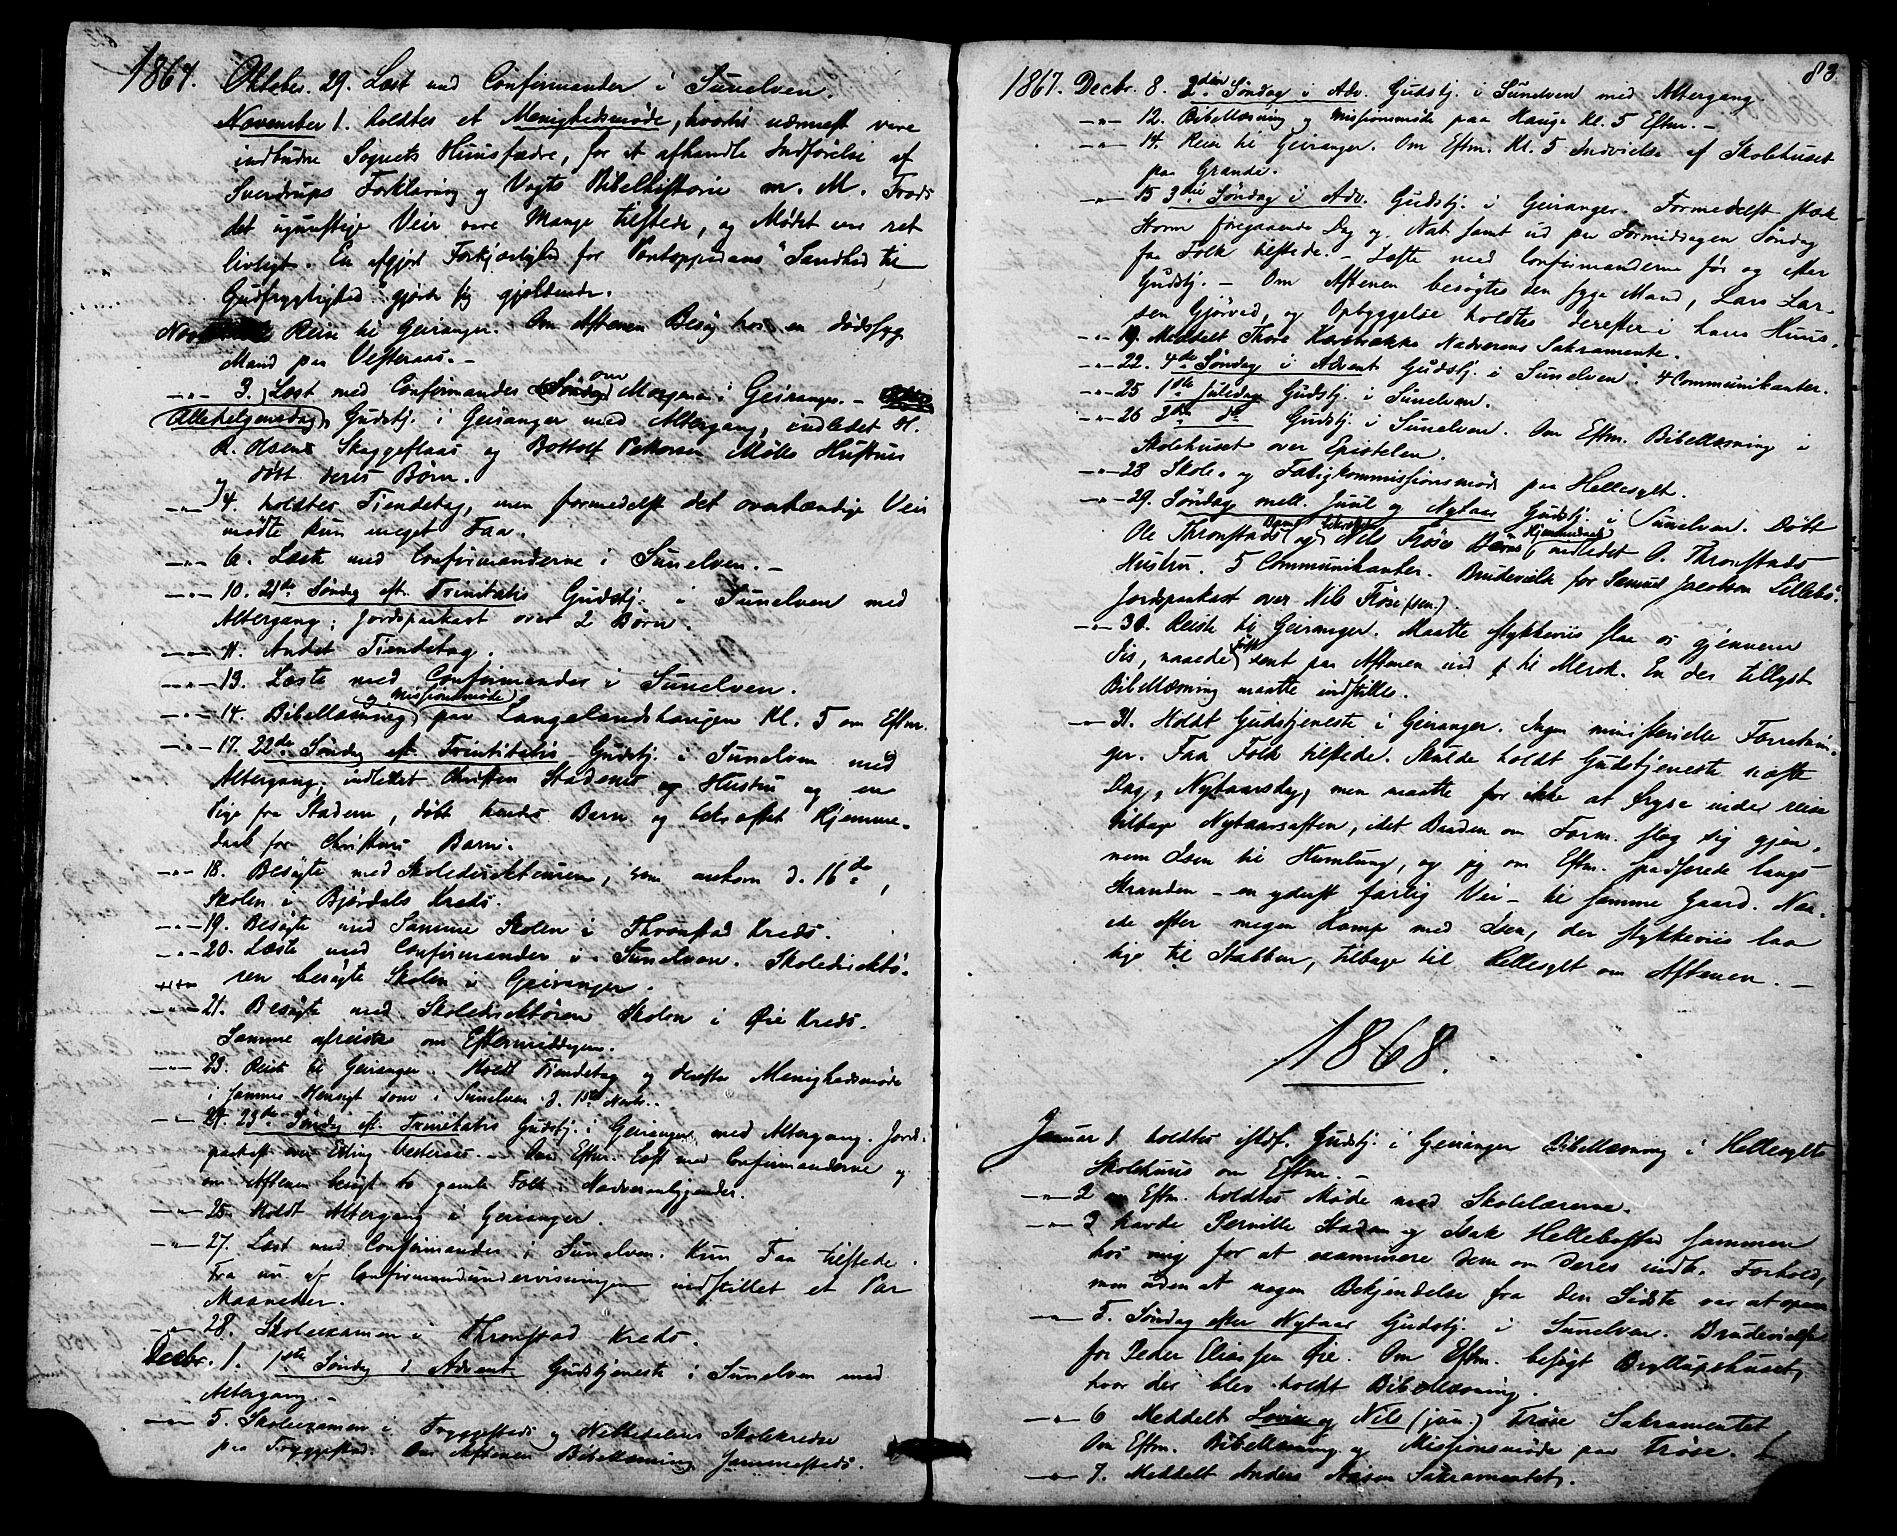 1867. Oktober. 29. Læst med Confirmander i Sunelven.
November 1. holdtes et Menighedsmøde, hvortil nærmest vare
indbudne Sognets Huusfædre, for at afhandle Indførelse af
Sverdrups Forklaring og Vogts Bibelhistorie m. M. Trods
det ugunstige Veir vare Mange tilstede, og Mødet var ret
livligt. En afgjort Forkjærlighed for Pontoppidans "Sandhed til
Gudfrygtighed" gjorde sig gjældende.
Reise til Geiranger. Om Aftenen Besøg hos en dødssyg
Mand paa Vesteraas. -
-"- 3. Læst med Confirmander om Morgenen i Geiranger. -
Allehelgensdag Gudstj. i Geiranger med Altergang, indledet
R. Olsens Skaggeflaas og Bottolf Pettersen Mølls Hustruer
og døbt deres Børn.
-"- 4. holdtes Tiendetag, men formedelst det overhændige Veir
mødte kun meget Faa.
-"- 6. Læste med Confirmanderne i Sunelven. -
-"- 10. 21de Søndag eft. Trinitatis Gudstj. i Sunelven med
Altergang; Jordspaakast over 2 Børn.
-"- 11. Andet Tiendetag.
-"- 13. Læste med Confirmander i Sunelven.
og Missionsmøde
-"- 14. Bibellæsning paa Langelandshaugen Kl. 5 om Eftm.
-"- 17. 22de Søndag eft. Trinitatis Gudstj. i Sunelven med
Altergang, indledet Christen Stadens og Hustru og en
Pige fra Stadem, døbt hendes Barn og bekræftet Hjemme-
daab for Christens Barn.
-"- 18. Besøgte med Skoledirekteuren, som ankom d. 16de,
Skolen i Bjørdals Kreds.
-"- 19. Besøgte med Samme Skolen i Thronstad Kreds.
-"- 20. Læste med Confirmander i Sunelven. Skoledirektø-
ren besøgte Skolen i Geiranger.
-"- 21. Besøgte med Skoledirektøren Skolen i Øie Kreds.
Samme afreiste om Eftermiddagen.
-"- 23. Reiste til Geiranger. Holdt Tiendetag og derefter Menighedsmøde
i samme Hensigt som i Sunelven d. 1ste Novbr.
-"- 24. 23de Søndag eft. Trinitatis Gudstj. i Geiranger med Altergang. Jord-
paakast over Erling Vesteraas. - Om Eftm. Læst med Confirmanderne og
om Aftenen besøgt to gamle Folk i Nadveranliggender.
-"- 25. Holdt Altergang i Geiranger.
-"- 27. Læst med Confirmander i Sunelven. Kun Faa tilstede.
Fra nu af Confirmandundervisningen indstillet et Par
Maaneder.
-"- 28. Skoleexamen i Thronstad Kreds.
Decbr. 1. 1ste Søndag i Advent Gudstjeneste i Sunelven med
Altergang. -
-"- 5. Skoleexamen i Tryggestads og Nebbedalens Skolekredse
paa Tryggestad. Om Aftenen Bibellæsning sammesteds.
83.
1867. Decbr. 8. 2den Søndag i Adv. Gudstj. i Sunelven med Altergang.
-"- 12. Bibellæsning og Missionsmøde paa Hauge Kl. 5 Eftm. -
-"- 14. Reise til Geiranger. Om Eftm. Kl. 5 Indvielse af Skolehuset
paa Grande.
-"- 15 3die Søndag i Adv. Gudstj. i Geiranger. Formedelst stærk
Storm foregaaende Dag og Nat samt ud paa Formiddagen Søndag
faa Folk tilstede. - Læste med Confirmanderne før og efter
Gudstj. - Om Aftenen besøgtes den syge Mand, Lars Lar-
sen Gjørved, og Opbyggelse holdtes derefter i hans Huus.
-"- 19. Meddelt Thore Nadverens Sakramente.
-"- 22. 4de Søndag i Advent Gudstj. i Sunelven. 4 Communikanter.
-"- 25 1ste Juledag Gudstj. i Sunelven.
-"- 26 2den do Gudstj. i Sunelven. Om Eftm. Bibellæsning i
Skolehuset over Epistelen.
-"- 28 Skole- og Fattigkommissionsmøde paa Hellesylt.
-"- 29. Søndag mell. Juul og Nytaar Gudstj. i Sunelven. Døbt
Ole Thronstads Barn og bekræftet Nils Frøses Barns Hjemmedaab, indledet O. Thronstads
Hustru. 5 Communikanter. Brudevielse for Samuel Jacobsen Lillebø.
Jordspaakast over Nils Frøse (sen.)
-"- 30. Reiste til Geiranger. Maatte stykkeviis slaa os gjennem
Iis, naaede først sent paa Aftenen ind til Merok. En der tillyst
Bibellæsning maatte indstilles.
-"- 31. Holdt Gudstjeneste i Geiranger. Ingen ministerielle Forretnin-
ger. Faa Folk tilstede. Skulde holdt Gudstjeneste næste
Dag, Nytaarsdag, men maatte for ikke at fryse inde reise
tilbage Nytaarsaften, idet Baaden om Form. slog sig gjen-
nem Isen til Humlung, og jeg om Eftm. spadserede langs
Stranden - en yderst farlig Vei - til samme Gaard. Naa-
ede efter megen Kamp med Isen, der stykkeviis laa
lige til Stabben, tilbage til Hellesylt om Aftenen. -
1868.
Januar 1. holdtes istedf. Gudstj. i Geiranger Bibellæsning i Hellesylts
Skolehuus om Eftm. -
-"- 2 om Eftm. holdtes Møde med Skolelærerne.
-"- 3 havde Pernille Stadem og Isak Hellebostad sammen
hos mig for at examinere dem om deres indb. Forhold,
men uden at nogen Bekjendelse fra den Sidste var at opnaa
-"- 5. Søndag efter Nytaar Gudstj. i Sunelven. Brudevielse
for Peder Eliassen Øie. Om Eftm. besøgt Bryllupshuset,
hvor der blev holdt Bibellæsning.
-"- 6 Meddelt Lovise og Nils (jun.) Frøse Sakramentet
Om Eftm. Bibellæsning og Missionsmøde paa Frøse.
-"- 7. Meddelt Anders Sakramentet.